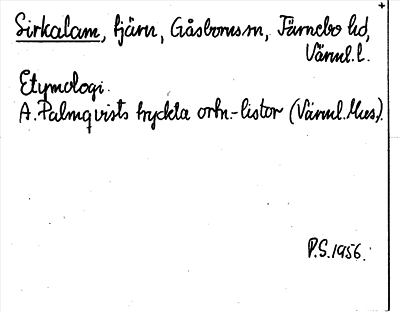 Sirkalam, tjärn, Gåsbornssn, Färnebo hd,
Värml. l.
Etymologi.
A. Palmqvists tryckta ortn.-listor (Värml. Mus.).
P.S. 1956.